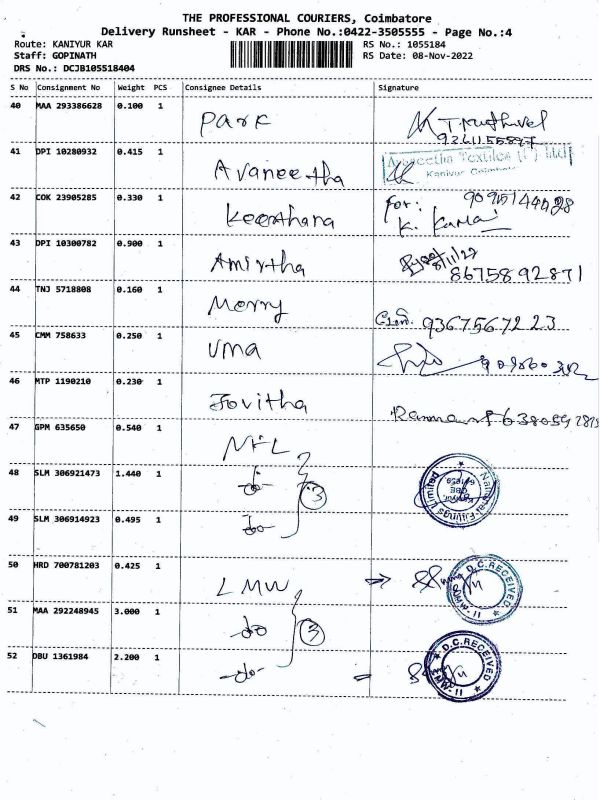 THE PROFESSIONAL COURIERS, Coimbatore
Delivery Runsheet - KAR - Phone No.:0422-3505555 - Page No.:4
Route: KANIYUR KAR RS No.: 1055184
Staff: GOPINATH RS Date: 08-Nov-2022
DRS No.: DCJB105518404
S No Consignment No Weight PCS Consignee Details Signature
40 MAA 293386628 0.100 1 Park
41 DPI 10280932 0.415 1 Avaneetha Avaneetha Textiles (P) Ltd
Kaniyur Coimbatore
42 COK 23905285 0.330 1 Keerthana For:
K.
43 DPI 10300782 0.900 1 Amirtha 8/11/22
8675892871
44 TNJ 5718808 0.160 1 Merry 9367567223
45 CMM 758633 0.250 1 Uma
46 MTP 1190210 0.230 1 Jovitha
47 GPM 635650 0.540 1 NFL
48 SLM 306921473 1.440 1 -do- 3 National Fittings Limited
49 SLM 306914923 0.495 1 -do-
50 HRD 700781203 0.425 1 LMW D.C.RECEIVED LMW-II
51 MAA 292248945 3.000 1 -do- 3
52 DBU 1361984 2.200 1 -do- D.C.RECEIVED LMW-II